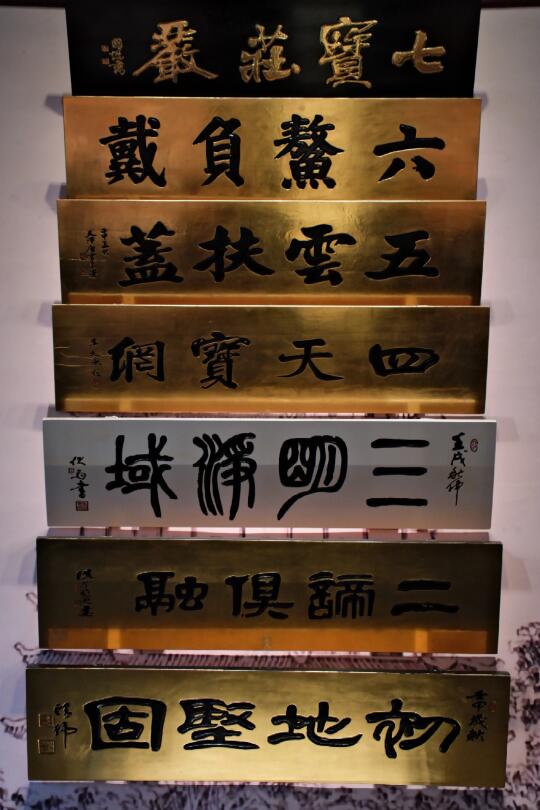 七寶莊嚴
六鰲負戴
五雲扶蓋
四天寶網
三明淨域
二諦俱融
初地堅固